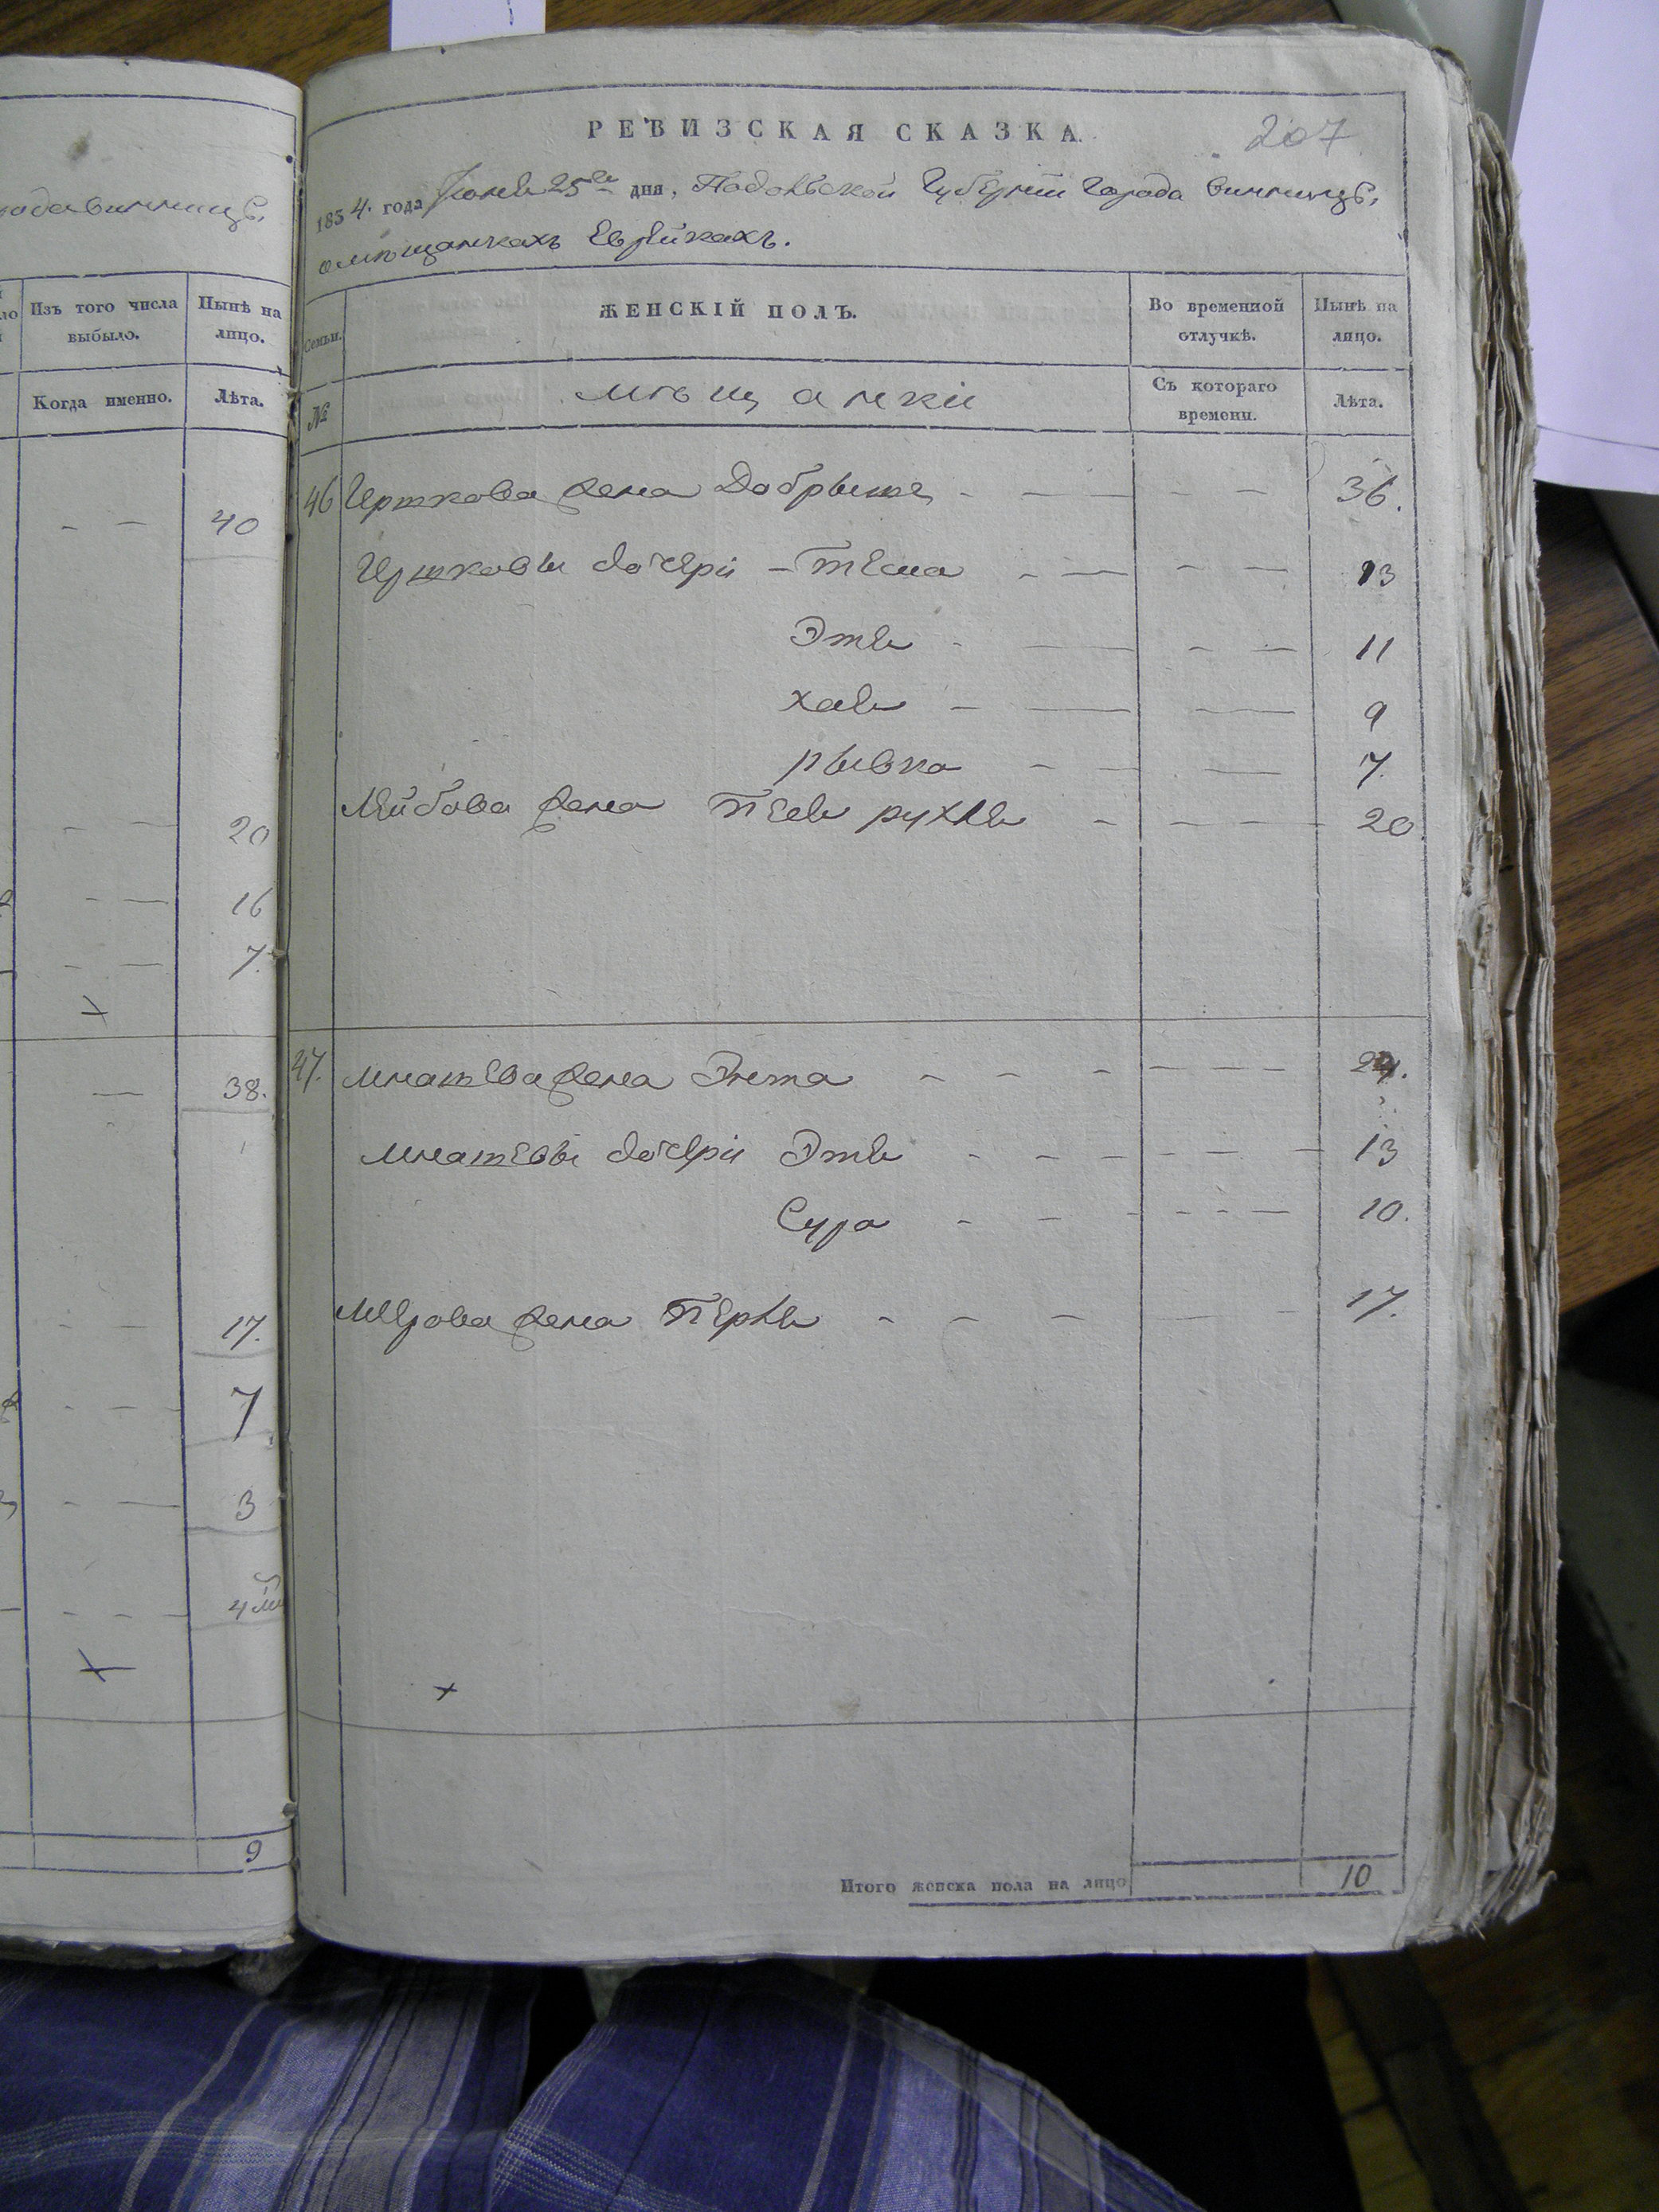 рода винницѣ,
Изъ того числа выбыло.
Нынѣ на лицо.
Когда именно.
Лѣта.
40
20
16
7.
38.
17.
7
3
4
9
РЕВИЗСКАЯ СКАЗКА.
207
1854. года Июня 25го дня, Подольской Губерніи Города винницѣ,
омѣщанкахъ Еврейкахъ.
Семьи.
ЖЕНСКІЙ ПОЛЪ.
Во временной отлучкѣ.
Нынѣ на лицо.
№
мѣщанки
Съ котораго времени.
Лѣта.
46 Гершкова жена Добрыша 36.
Гершковы дочери - Тема 13
Этя 11
Хая 9
рывка 7.
Лейбова жена рухля 20
47. жена Энета
дочери Этя 13
Сура 10.
Меерова жена Перля 17.
Итого женска пола на лицо 10